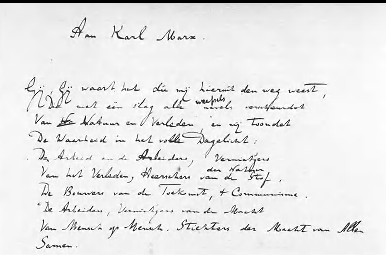 Aan Karl Marx.
Gij, Gij waart het die mij hieruit den weg weest,
met één slag alle weefsels
Van Natuur en Verleden, en mij toondet
De Waarheid in het volle Daglicht:
De Arbeid en de Arbeiders, Vernietigers
Van het Verleden, Heerschers van de Stof,
der Natuur
De Bouwers van de Toekomst, 't Communisme.
De Arbeiders, Vernietigers van de Macht
Van Mensch op Mensch. Stichters der Macht van Allen
Samen.